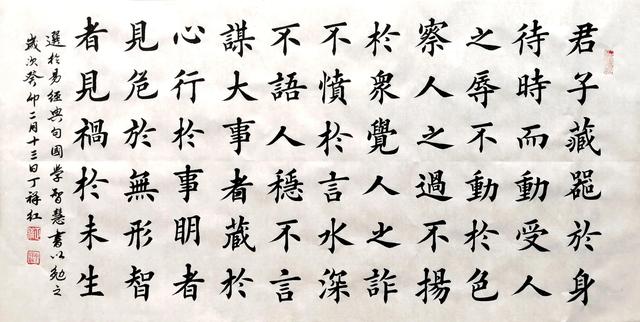 君子藏器於身
待時而動受人
之辱不動於色
察人之過不揚
於衆覺人之詐
不憤於言水深
不語人穩不言
謀大事者藏於
心行於事明者
見危於無形智
者見禍於未生
選於易經典句國學智慧書以勉之
歲次癸卯二月十三日丁祥紅